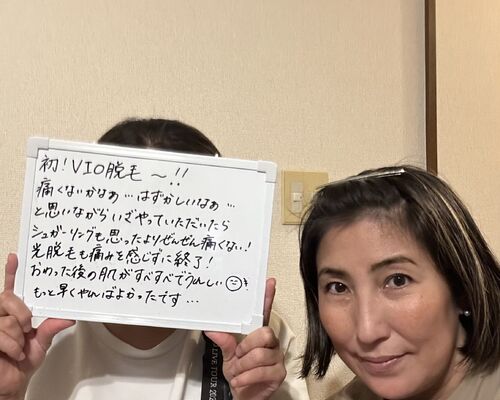 初!VIO脱毛 〜!!
痛くないかなぁ…はずかしいなぁ…
と思いながらいざやっていただいたら
シュガーリングも思ったよりぜんぜん痛くない!
光脱毛も痛みを感じずに終了!
おわった後の肌がすべすべでうれしい
もっと早くやればよかったです…
LIVE TOUR 202